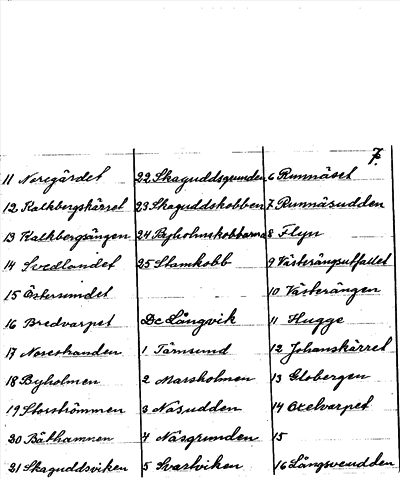 7.
11 Noregärdet
12 Kalkbergskärret
13 Kalkbergsängen
14 Svedlandet
15 Östersundet
16 Bredvarpet
17 Nosestranden
18 Byholmen
19 Storströmmen
20 Båthamnen
21 Skaguddsviken
22 Skaguddsgrunden
23 Skaguddskobben
24 Byholmskobbarna
25 Stamkobb
Dc Långvik
1 Tärnsund
2 Marsholmen
3 Näsudden
4 Näsgrunden
5 Svartviken
6 Runnäset
7 Runnäsudden
8 Flyn
9 Västerängsutfallet
10 Västerängen
11 Hugge
12 Johanskärret
13 Globergen
14 Oxelvarpet
15
16 Långsveudden